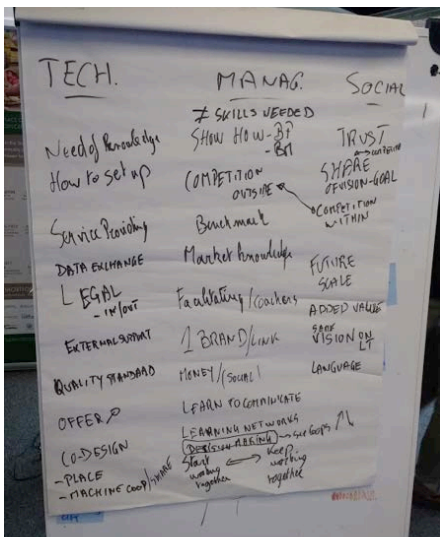 TECH.
Need of Knowledge
How to set up
Service Providing
DATA EXCHANGE
LEGAL
- IN/OUT
EXTERNAL SUPPORT
QUALITY STANDARD
OFFER
CO-DESIGN
- PLACE
- MACHINE COOP/SHARE
MANAG.
≠ SKILLS NEEDED
SHOW HOW - BP
- BM
COMPETITION
OUTSIDE
Benchmark
Market Knowledge
Facilitating/coachers
1 BRAND/LINK
MONEY/(SOCIAL)
LEARN TO COMMUNICATE
LEARNING NETWORKS
DECISION MAKING
Start ↔ Keep
working working
together together
SOCIAL
TRUST
SHARE
OF VISION-GOAL
COMPETITION
WITHIN
FUTURE
SCALE
ADDED VALUE
SAME
VISION ON
LT
LANGUAGE